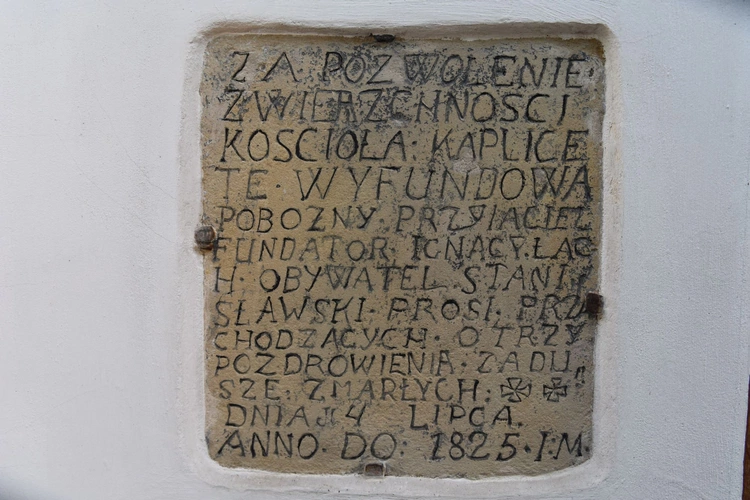 Z·A·POZWOLENIE·
ZWIERZCHNOSCI
KOSCIOŁA·KAPLICE
TE·WYFUNDOWA
POBOZNY·PRZYIACIEL
FUNDATOR·IGNACY·ŁAC
H·OBYWATEL·STANI
SŁAWSKI·PROSI·PRZ
CHODZĄCYCH·O TRZY
POZDROWIENIA·ZA DU„
SZE·ZMARŁYCH·✠ ✠
DNIA 4 LIPCA.
ANNO·DO:1825·I·M·